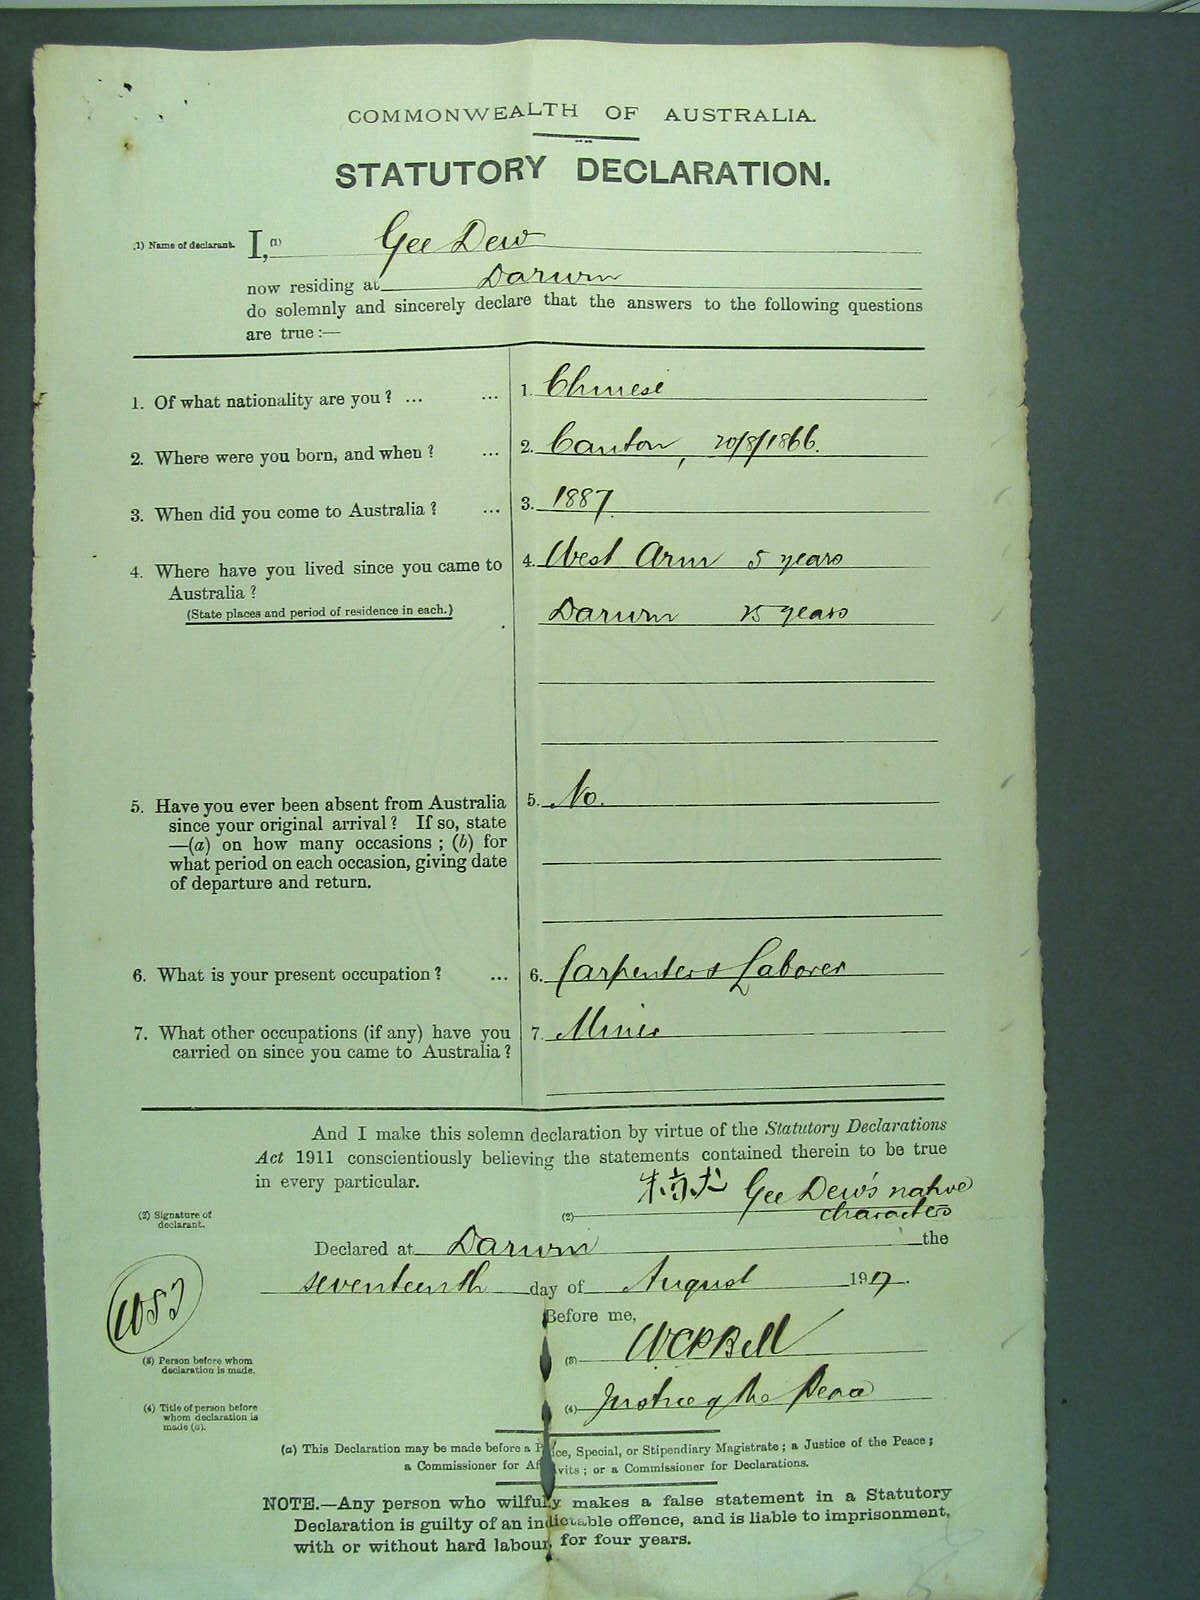 COMMONWEALTH OF AUSTRALIA.
STATUTORY DECLARATION.
(1) Name of declarant. I, (1) Gee Dew
now residing at Darwin
do solemnly and sincerely declare that the answers to the following questions
are true:—
1. Of what nationality are you? ... ... 1. Chinese
2. Where were you born, and when? ... 2. Canton, 20/8/1866.
3. When did you come to Australia? ... 3. 1887.
4. Where have you lived since you came to 4. West Arm 5 years
Australia?
(State places and period of residence in each.) Darwin 25 years
5. Have you ever been absent from Australia 5. No.
since your original arrival? If so, state
—(a) on how many occasions; (b) for
what period on each occasion, giving date
of departure and return.
6. What is your present occupation? ... 6. Carpenters Laborer
7. What other occupations (if any) have you 7. Miner
carried on since you came to Australia?
And I make this solemn declaration by virtue of the Statutory Declarations
Act 1911 conscientiously believing the statements contained therein to be true
in every particular.
(2) Signature of declarant. (2) Gee Dew's native
characters
Declared at Darwin the
seventeenth day of August 1917.
Before me,
1083
(3) Person before whom declaration is made. (3) WCPBell
(4) Title of person before whom declaration is made (a). (4) Justice of the Peace
(a) This Declaration may be made before a Police, Special, or Stipendiary Magistrate; a Justice of the Peace;
a Commissioner for Affidavits; or a Commissioner for Declarations.
NOTE.—Any person who wilfully makes a false statement in a Statutory
Declaration is guilty of an indictable offence, and is liable to imprisonment,
with or without hard labour, for four years.